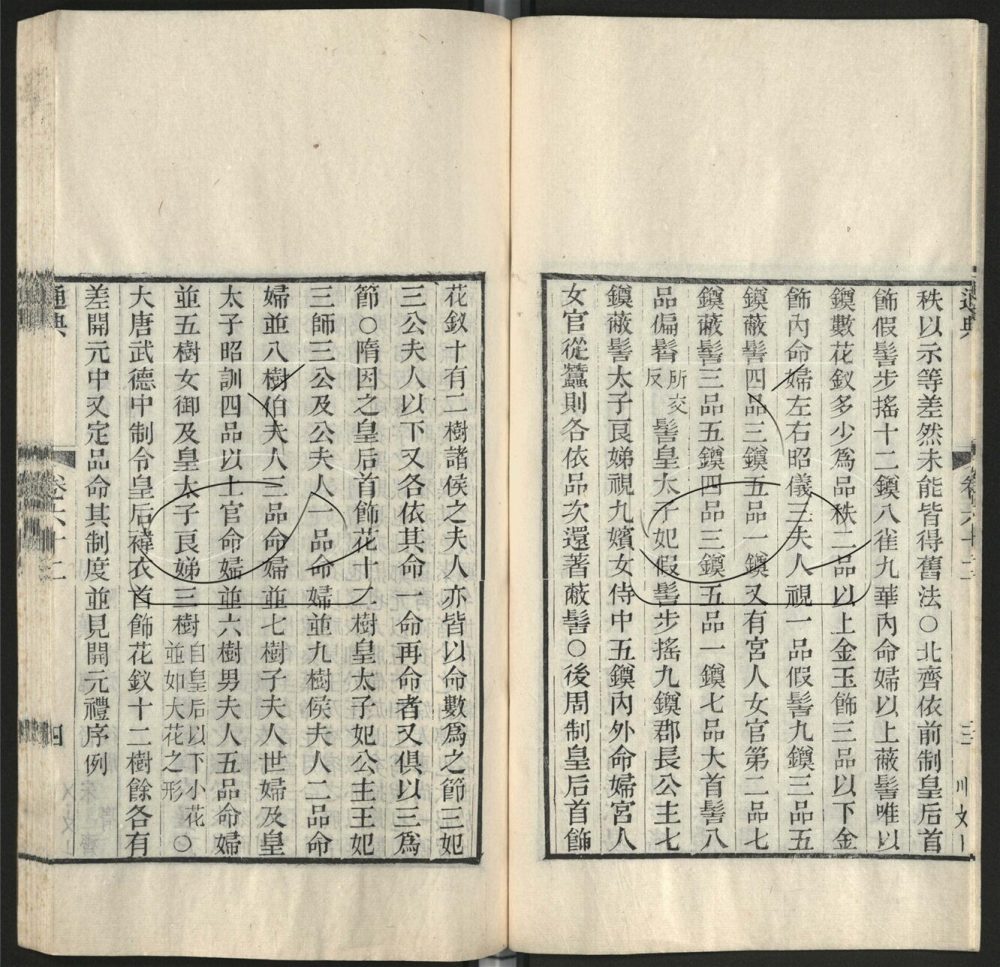 秩以示等差然未能皆得舊法○北齊依前制皇后首
飾假髻步搖十二鑷八雀九華內命婦以上蔽髻唯以
鑷數花釵多少爲品秩二品以上金玉飾三品以下金
飾內命婦左右昭儀三夫人視一品假髻九鑷三品五
鑷蔽髻四品三鑷五品一鑷又有宮人女官第二品七
鑷蔽髻三品五鑷四品三鑷五品一鑷七品大首髻八
品偏髾所交反髻皇太子妃假髻步搖九鑷郡長公主七
鑷蔽髻太子良娣視九嬪女侍中五鑷內外命婦宮人
女官從蠶則各依品次還著蔽髻○後周制皇后首飾
花釵十有二樹諸侯之夫人亦皆以命數爲之節三妃
三公夫人以下又各依其命一命再命者又俱以三爲
節○隋因之皇后首飾花十二樹皇太子妃公主王妃
三師三公及公夫人一品命婦並九樹侯夫人二品命
婦並八樹伯夫人三品命婦並七樹子夫人世婦及皇
太子昭訓四品以上官命婦並六樹男夫人五品命婦
並五樹女御及皇太子良娣三樹自皇后以下小花並如大花之形○
大唐武德中制令皇后褘衣首飾花釵十二樹餘各有
差開元中又定品命其制度並見開元禮序例
通典
卷六十二
四